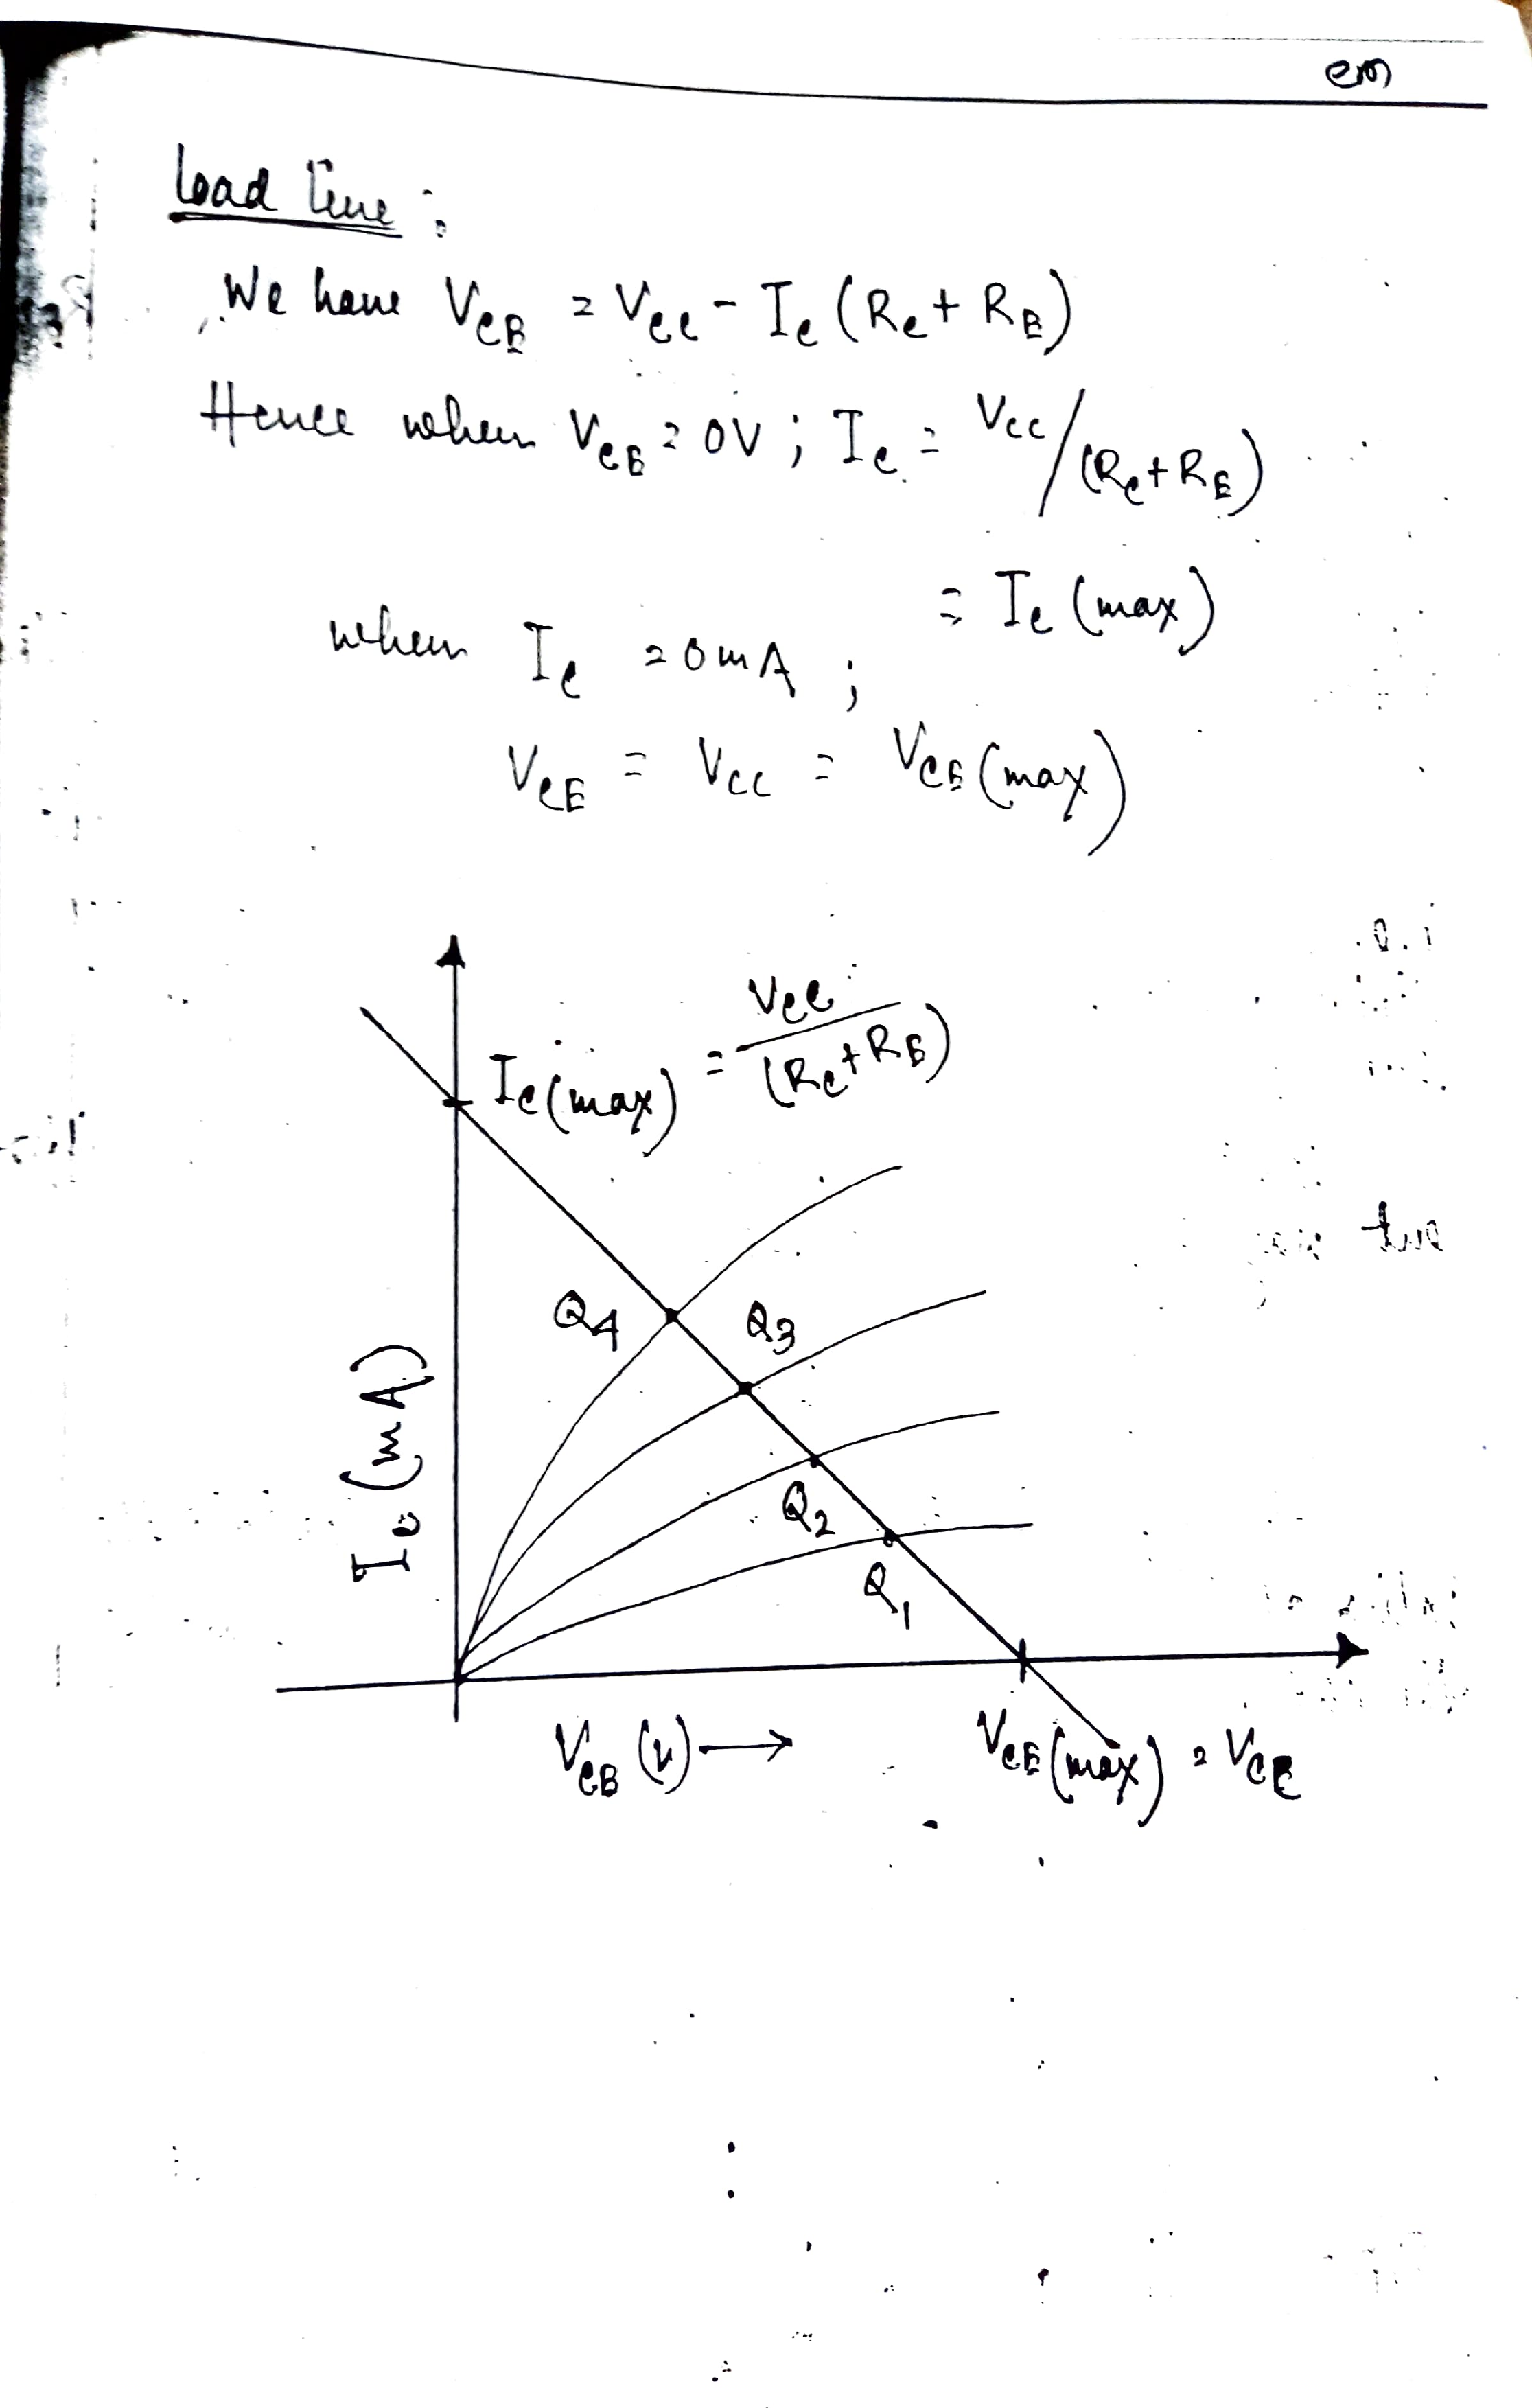 em
Load line :
We have VCE = VCC - IC (RC + RE)
Hence when VCE = 0V ; IC = VCC/(RC+RE)
= IC (max)
when IC = 0mA ;
VCE = VCC = VCE (max)
IC(max) = VCC/(RC+RE)
Q4
Q3
Q2
Q1
IC (mA)
VCE (V) →
VCE (max) = VCC